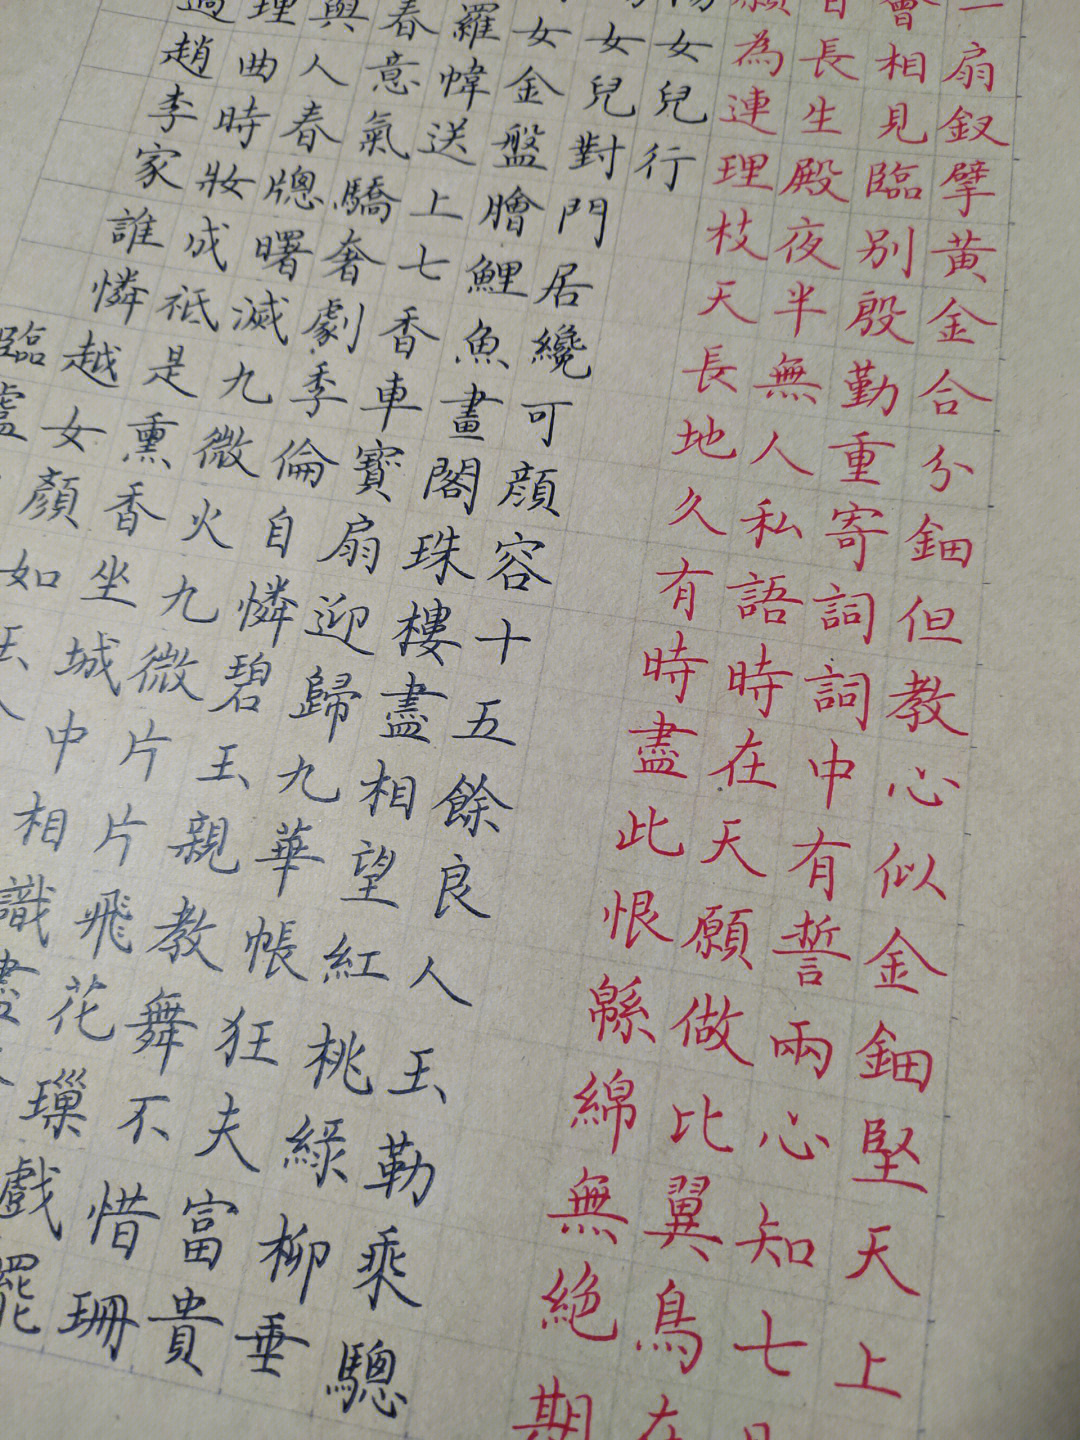 一扇釵擘黃金合分鈿但教心似金鈿堅天上
會相見臨別殷勤重寄詞詞中有誓兩心知七
日長生殿夜半無人私語時在天願做比翼鳥在
願為連理枝天長地久有時盡此恨緜綿無絕期
女兒行
女兒對門居纔可顔容十五餘良人玉勒乘驄
女金盤膾鯉魚畫閣珠樓盡相望紅桃緑柳垂
羅幃送上七香車寶扇迎歸九華帳狂夫富貴
春意氣驕奢劇季倫自憐碧玉親教舞不惜珊
與人春牕曙滅九微火九微片片飛花璅戲罷
理曲時妝成祗是熏香坐城中相識盡
過趙李家誰憐越女顏如玉
臨